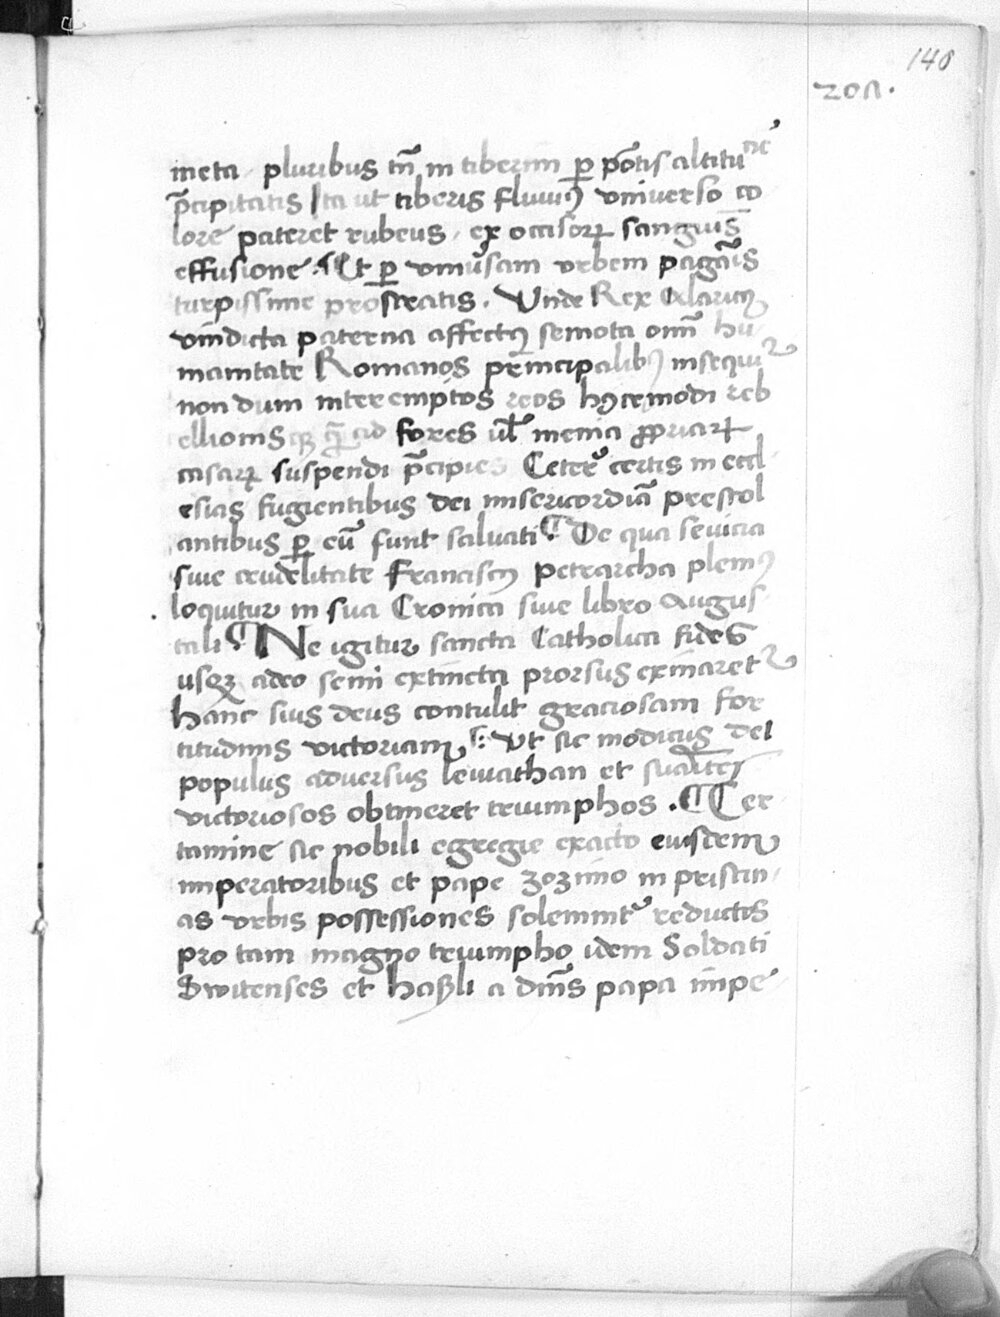 148
201.
meta pluribus tn̄ in tiberim ꝑ pōtis altitudīe
p̄cipitatis Ita ut tiberis fluuiꝰ vniuerso co
lore pateret rubeus, ex occisorꝝ sanguīs
effusione. ¶ Et ꝑ vniūsam vrbem pagāis
turpissime prostratis. Vnde Rex Alaricꝰ
vindicta paterna affectꝰ semota om̄i hu
manitate Romanos principalibꝰ insequit᷑
non dum interemptos reos hꝰcemodi reb
ellionis ad fores ul᷑ menia ꝓpriarꝝ
casarꝝ suspendi p̄cipies Ceterꝰ certis in eccl
esias fugientibus dei misericordiā prestol
antibus ꝑ eū sunt saluati ¶ De qua seuicia
siue crudelitate Franciscꝰ petrarcha pleniꝰ
loquitur in sua Cronica siue libro Augus
tali ¶ Ne igitur sancta Catholica fides
usqꝫ adeo semi extincta prorsus exinaret᷑
hanc suis deus contulit graciosam for
titudinis victoriam: Vt sic modicus dei
populus aduersus leuiathan et
victoriosos obtineret triumphos. ¶ Cer
tamine sic nobili egregie exacto eiusdem
imperatoribus et pape zozimo in pristin
as vrbis possessiones solemnit᷑ reductis
pro tam magno triumpho idem Soldati
Switenses et Haßli a dn̄is papa impe